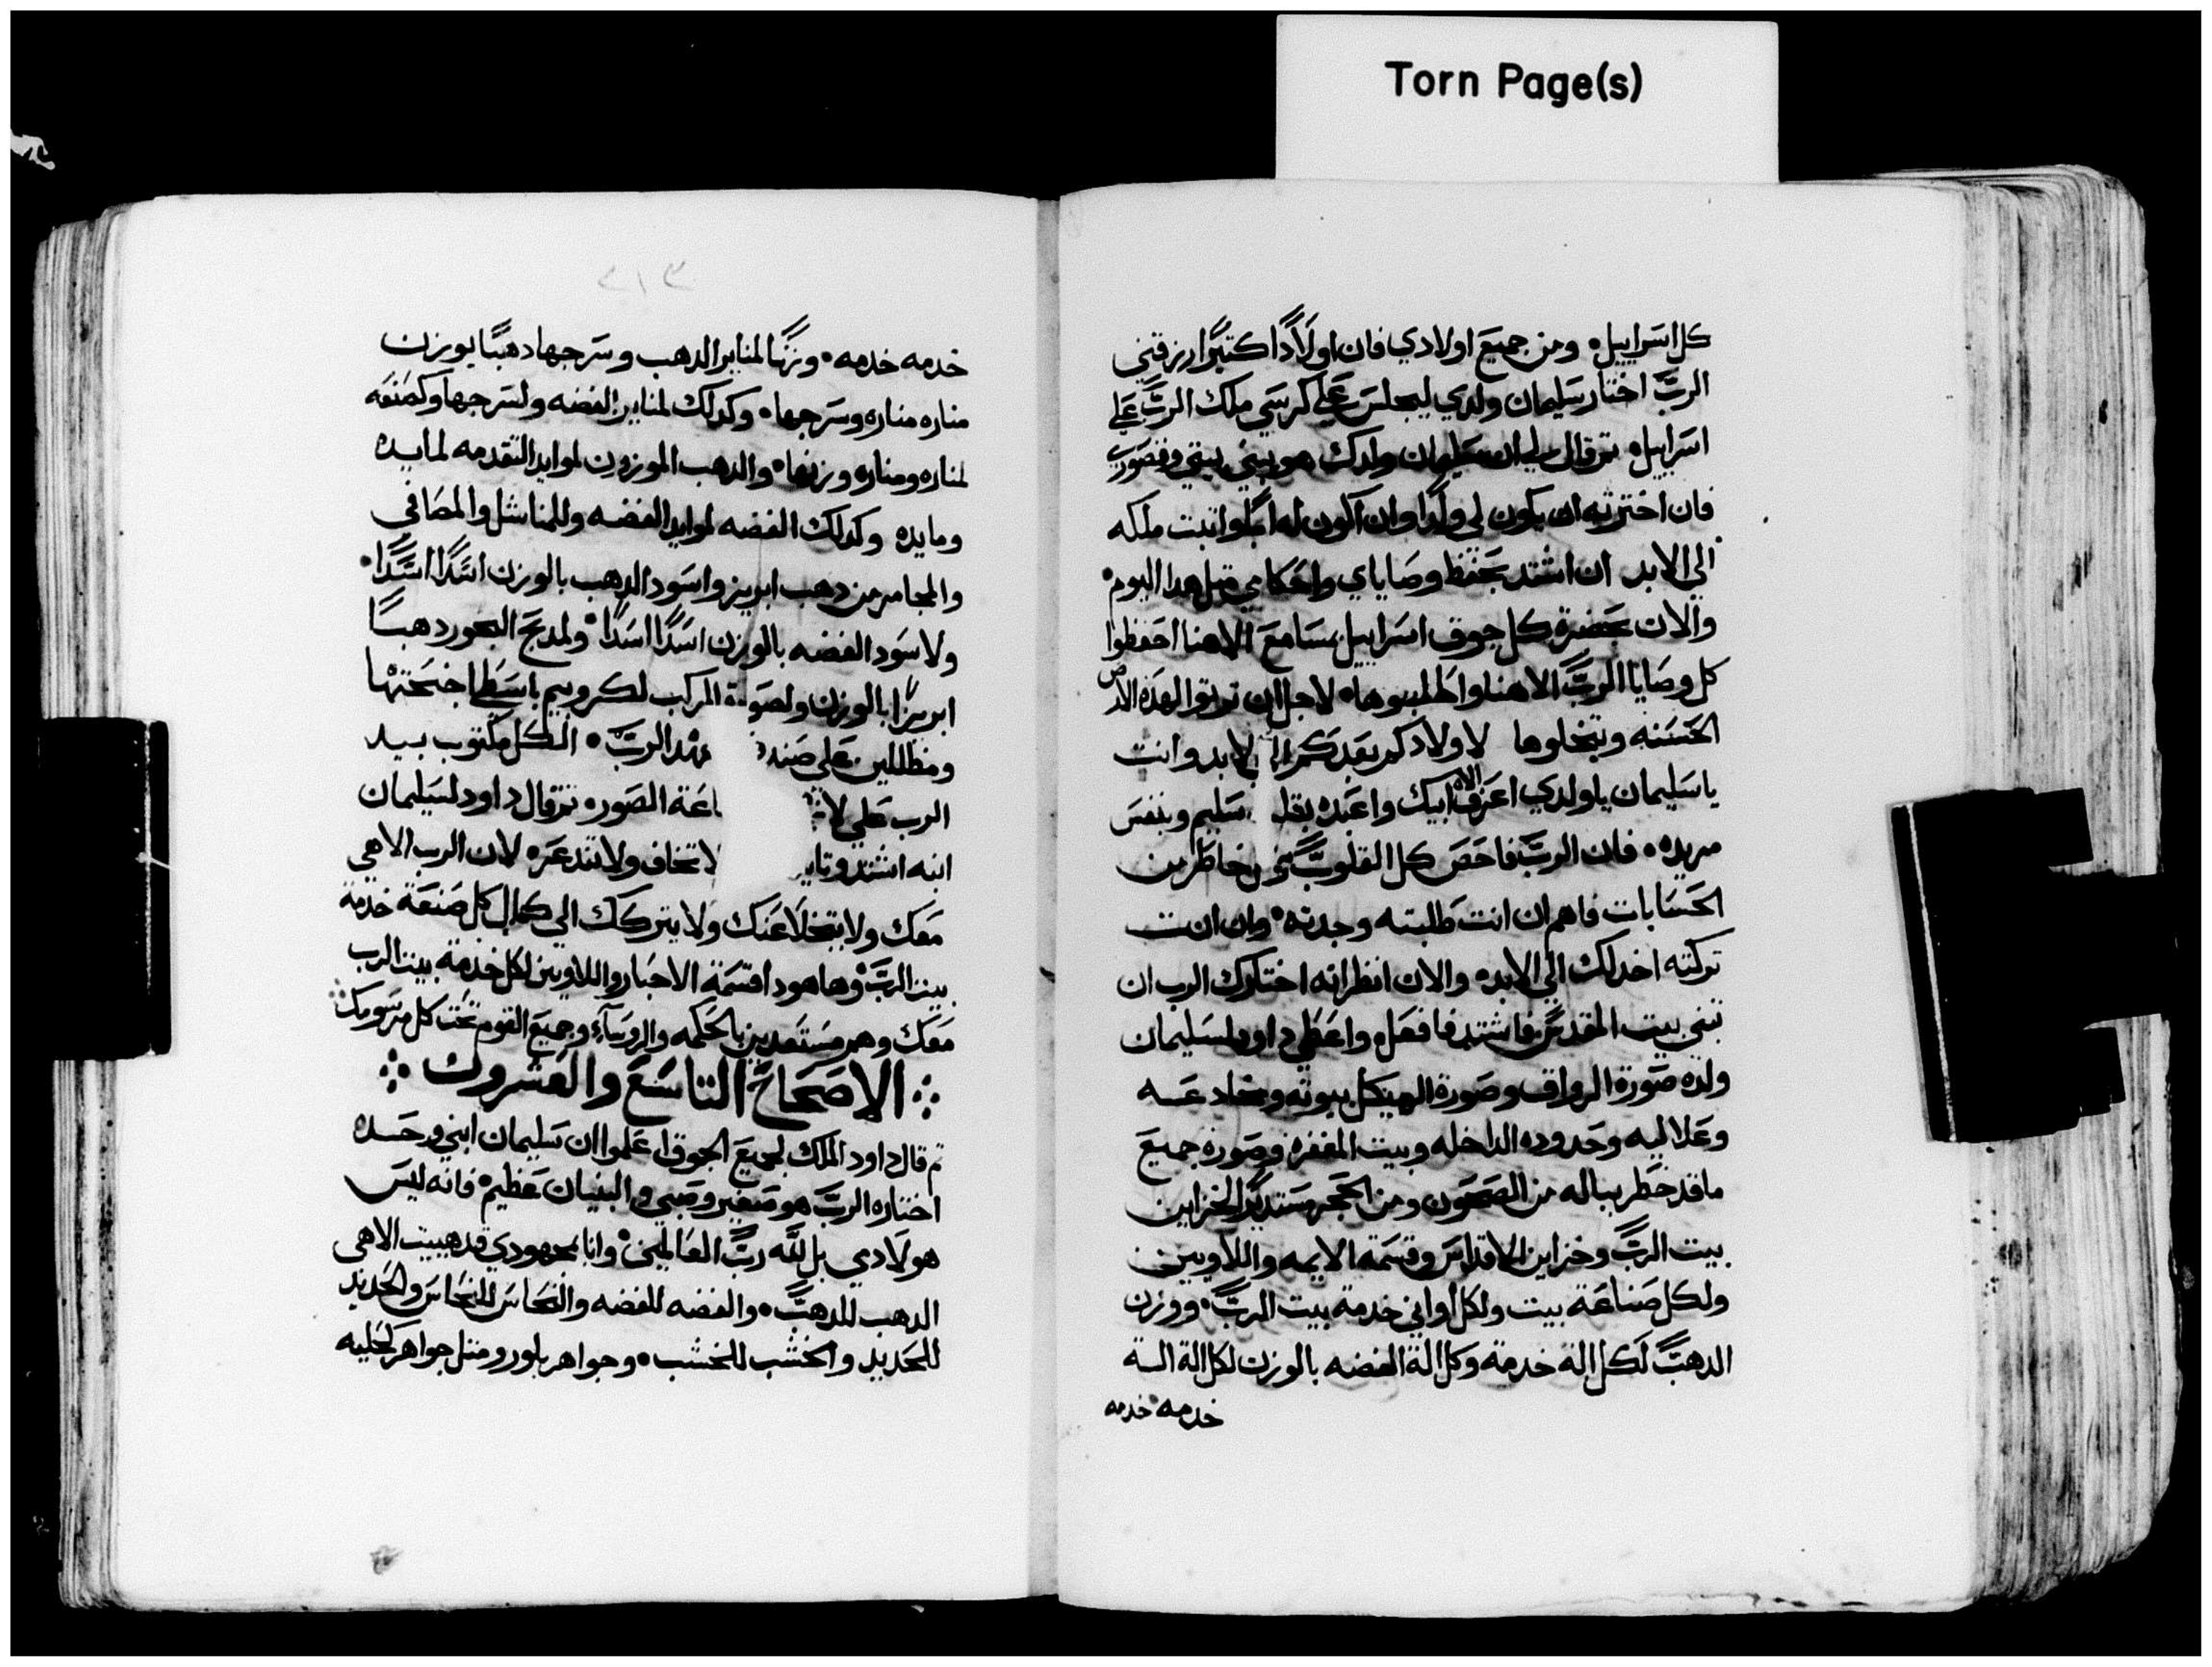 Torn Page(s)
كل اسراييل ومن جميع اولادي فان اولادًا كتيرًا رزقني
الربّ اختار سليمان ولدي ليجلس علي كرسي ملك الربّ علي
اسراييل تم قال لي ان سليمان ولدك هو يبني بيتي وقصوري
فان اخترته ان يكون لي ولدًا وان اكون له ابًا واتبت ملكه
الي الابد ان اشتد بحفظ وصاياي واحكامي متل هدا اليوم
والان بحضرة كل جوق اسراييل بمسامع الاهنا احفظوا
كل وصايا الربّ الاهنا واطلبوها لاجل ان ترتوا لهده الارض
الحسنه وتنحلوها لاولادكم بعدكم الي الابد وانت
ياسليمان ياولدي اعرف الاه ابيك واعبده بقلب سليم وبنفس
مريده فان الربّ فاحص كل القلوب خاطر من
الحسابات فاهم ان انت طلبته وجدته وان انت
تركته اخدلك الي الابد والان انظر انه اختارك الرب ان
تبني بيت المقدس فاشتد فافعل واعطي داود لسليمان
ولده صورة الرواق وصورة الهيكل بيوته ومخادعه
وعلاليه وحدوده الداخله وبيت المغفره وصورة جميع
ماقد خطر بباله من الصحون ومن الحجر مستديرًا لخزاين
بيت الربّ وخزاين الاقداس وقسمة الايمه واللاويين
ولكل صناعة بيت ولكل اواني خدمة بيت الربّ ووزن
الدهب لكل الة خدمة وكل الة الفضه بالوزن لكل الة الة
خدمه خدمه
٣١٢
خدمه خدمه وزنًا لمناير الدهب وسرجها دهبًا بوزن
مناره مناره وسرجها وكدلك لمناير الفضه ولسرجها وكصنعه
لمناره ومناره وزنها والدهب الموزون لموايد التقدمه لمايده
ومايده وكدلك الفضه لموايد الفضه وللمناشل والمصافي
والمجامر من دهب ابريز واسود الدهب بالوزن اسدًا اسدًا
ولاسود الفضه بالوزن اسدًا اسدًا ولمدبح البخور دهبًا
ابريزًا بالوزن ولصورة المركب لكروبيم باسطا اجنحتها
ومظللين علي صند عهد الربّ الكل مكتوب بيد
الرب علي لا اعة الصوره تم قال داود لسليمان
ابنه اشتد وتايد لاتخاف ولاتندعره لان الرب الاهي
معك ولايتخلا عنك ولايتركك الي كمال كل صنعة خدمة
بيت الربّ وهاهودا قسمة الاحبار واللاويين لكل خدمة بيت الرب
معك وهم مستعدين بالحكمه والروسآء وجميع القوم تحت كل مرسومك
الاصحاح التاسع والعشرون
تم قال داود الملك لجميع الجوق اعلموا ان سليمان ابني وحده
اختاره الربّ هو صغير وصبي والبنيان عظيم فانه ليس
هو لادمي بل لله ربّ العالمين وانا بمجهودي قد هييت لبيت الاهي
الدهب للدهب والفضه للفضه والنحاس للنحاس والحديد
للحديد والخشب للخشب وجواهر بلور ومتل جواهر لحليه